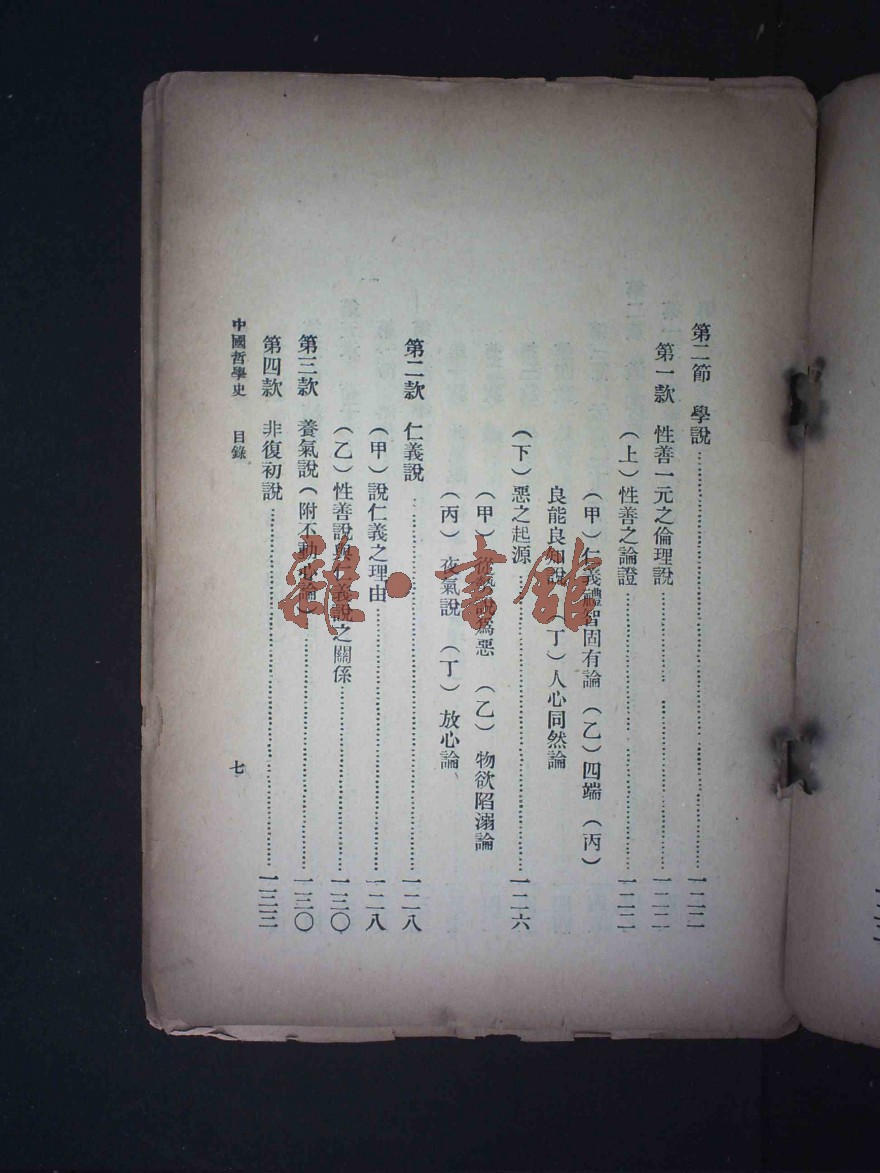 第二節　學說……一二二
第一款　性善一元之倫理說……一二二
（上）性善之論證……一二二
（甲）仁義禮智固有論（乙）四端（丙）
良能良知說（丁）人心同然論
（下）惡之起源……一二六
（甲）從 說爲惡（乙）物欲陷溺論
（丙）夜氣說（丁）放心論
第二款　仁義說……一二八
（甲）說仁義之理由……一二八
（乙）性善說與仁義說之關係……一三〇
第三款　養氣說（附不動心論）……一三〇
第四款　非復初說……一三三
中國哲學史　目錄　七
雜·書館